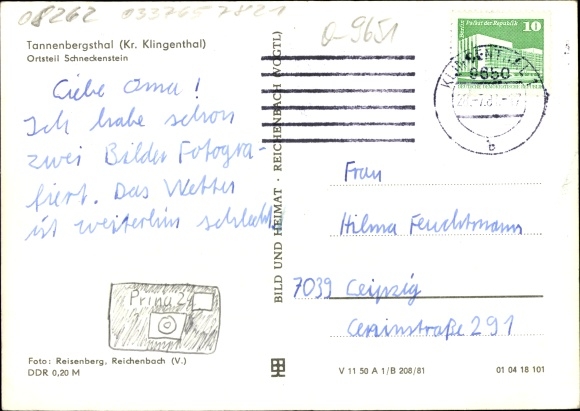 08262 0337657821
0-9651
Tannenbergsthal (Kr. Klingenthal)
Ortsteil Schneckenstein
Liebe Oma!
Ich habe schon
zwei Bilder Fotogra-
fiert. Das Wetter
ist weiterhin schlecht.
Prina 24
Foto: Reisenberg, Reichenbach (V.)
DDR 0,20 M
BILD UND HEIMAT · REICHENBACH (VOGTL)
Palast der Republik
10
9650
b
Frau
Hilma Feuchtmann
7039 Leipzig
Leninstraße 291
V 11 50 A 1/B 208/81
01 04 18 101